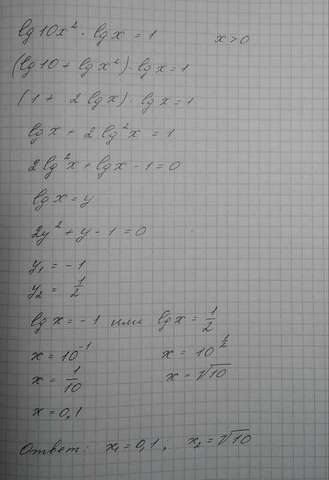 lg10x² · lgx = 1    x>0
(lg10 + lgx²) · lgx = 1
(1 + 2lgx) · lgx = 1
lgx + 2lg²x = 1
2lg²x + lgx - 1 = 0
lgx = y
2y² + y - 1 = 0
y₁ = -1
y₂ = 1/2
lgx = -1 или lgx = 1/2
x = 10⁻¹    x = 10^(1/2)
x = 1/10    x = √10
x = 0,1
Ответ: x₁ = 0,1; x₂ = √10